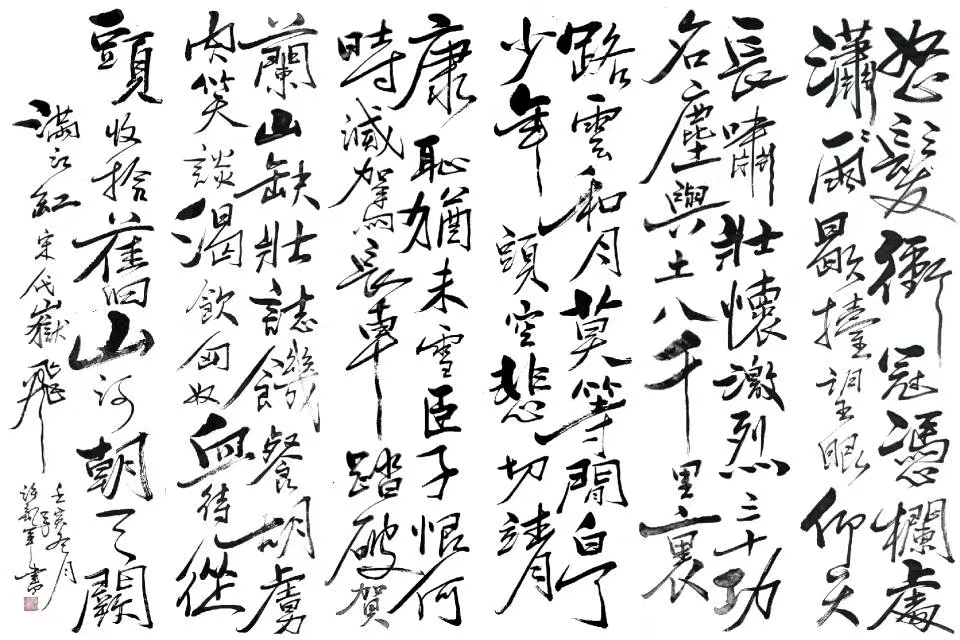 怒髮衝冠憑欄處
瀟々雨歇擡望眼仰天
長嘯壯懷激烈三十功
名塵與土八千里裏
路雲和月莫等閒白了
少年頭空悲切靖
康恥猶未雪臣子恨何
時滅駕長車踏破賀
蘭山缺壯誌饑餐胡虜
肉笑談渴飲匈奴血待從
頭收拾舊山河朝天闕
滿江紅 宋代嶽飛
壬寅冬月
軍書